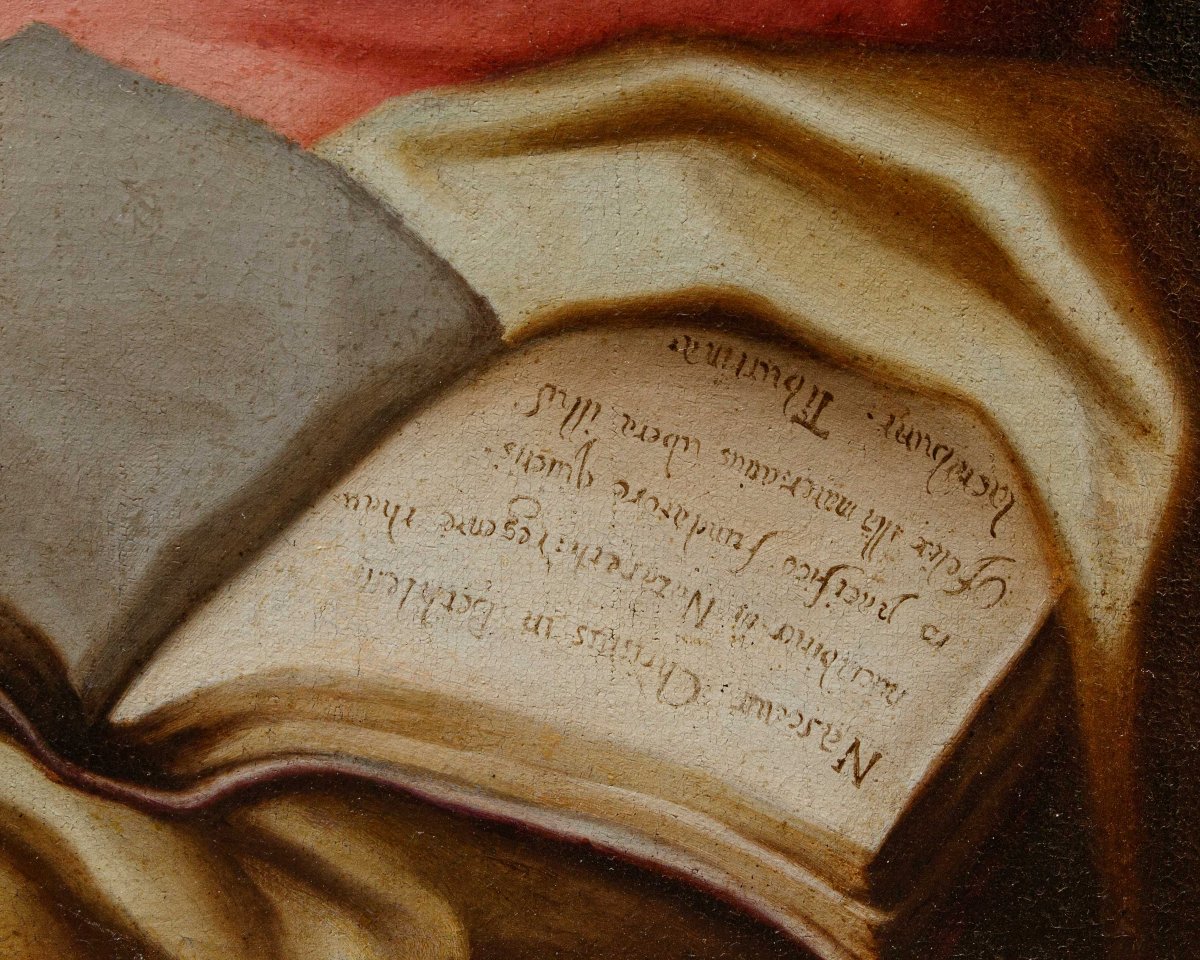 Nascetur Christus in Bethlem
nuciabitur in Nazareth: regente
pacifico fundatore quietis.
Felix illa mater cuius ubera illus
lactabunt: Tiburtinæ.